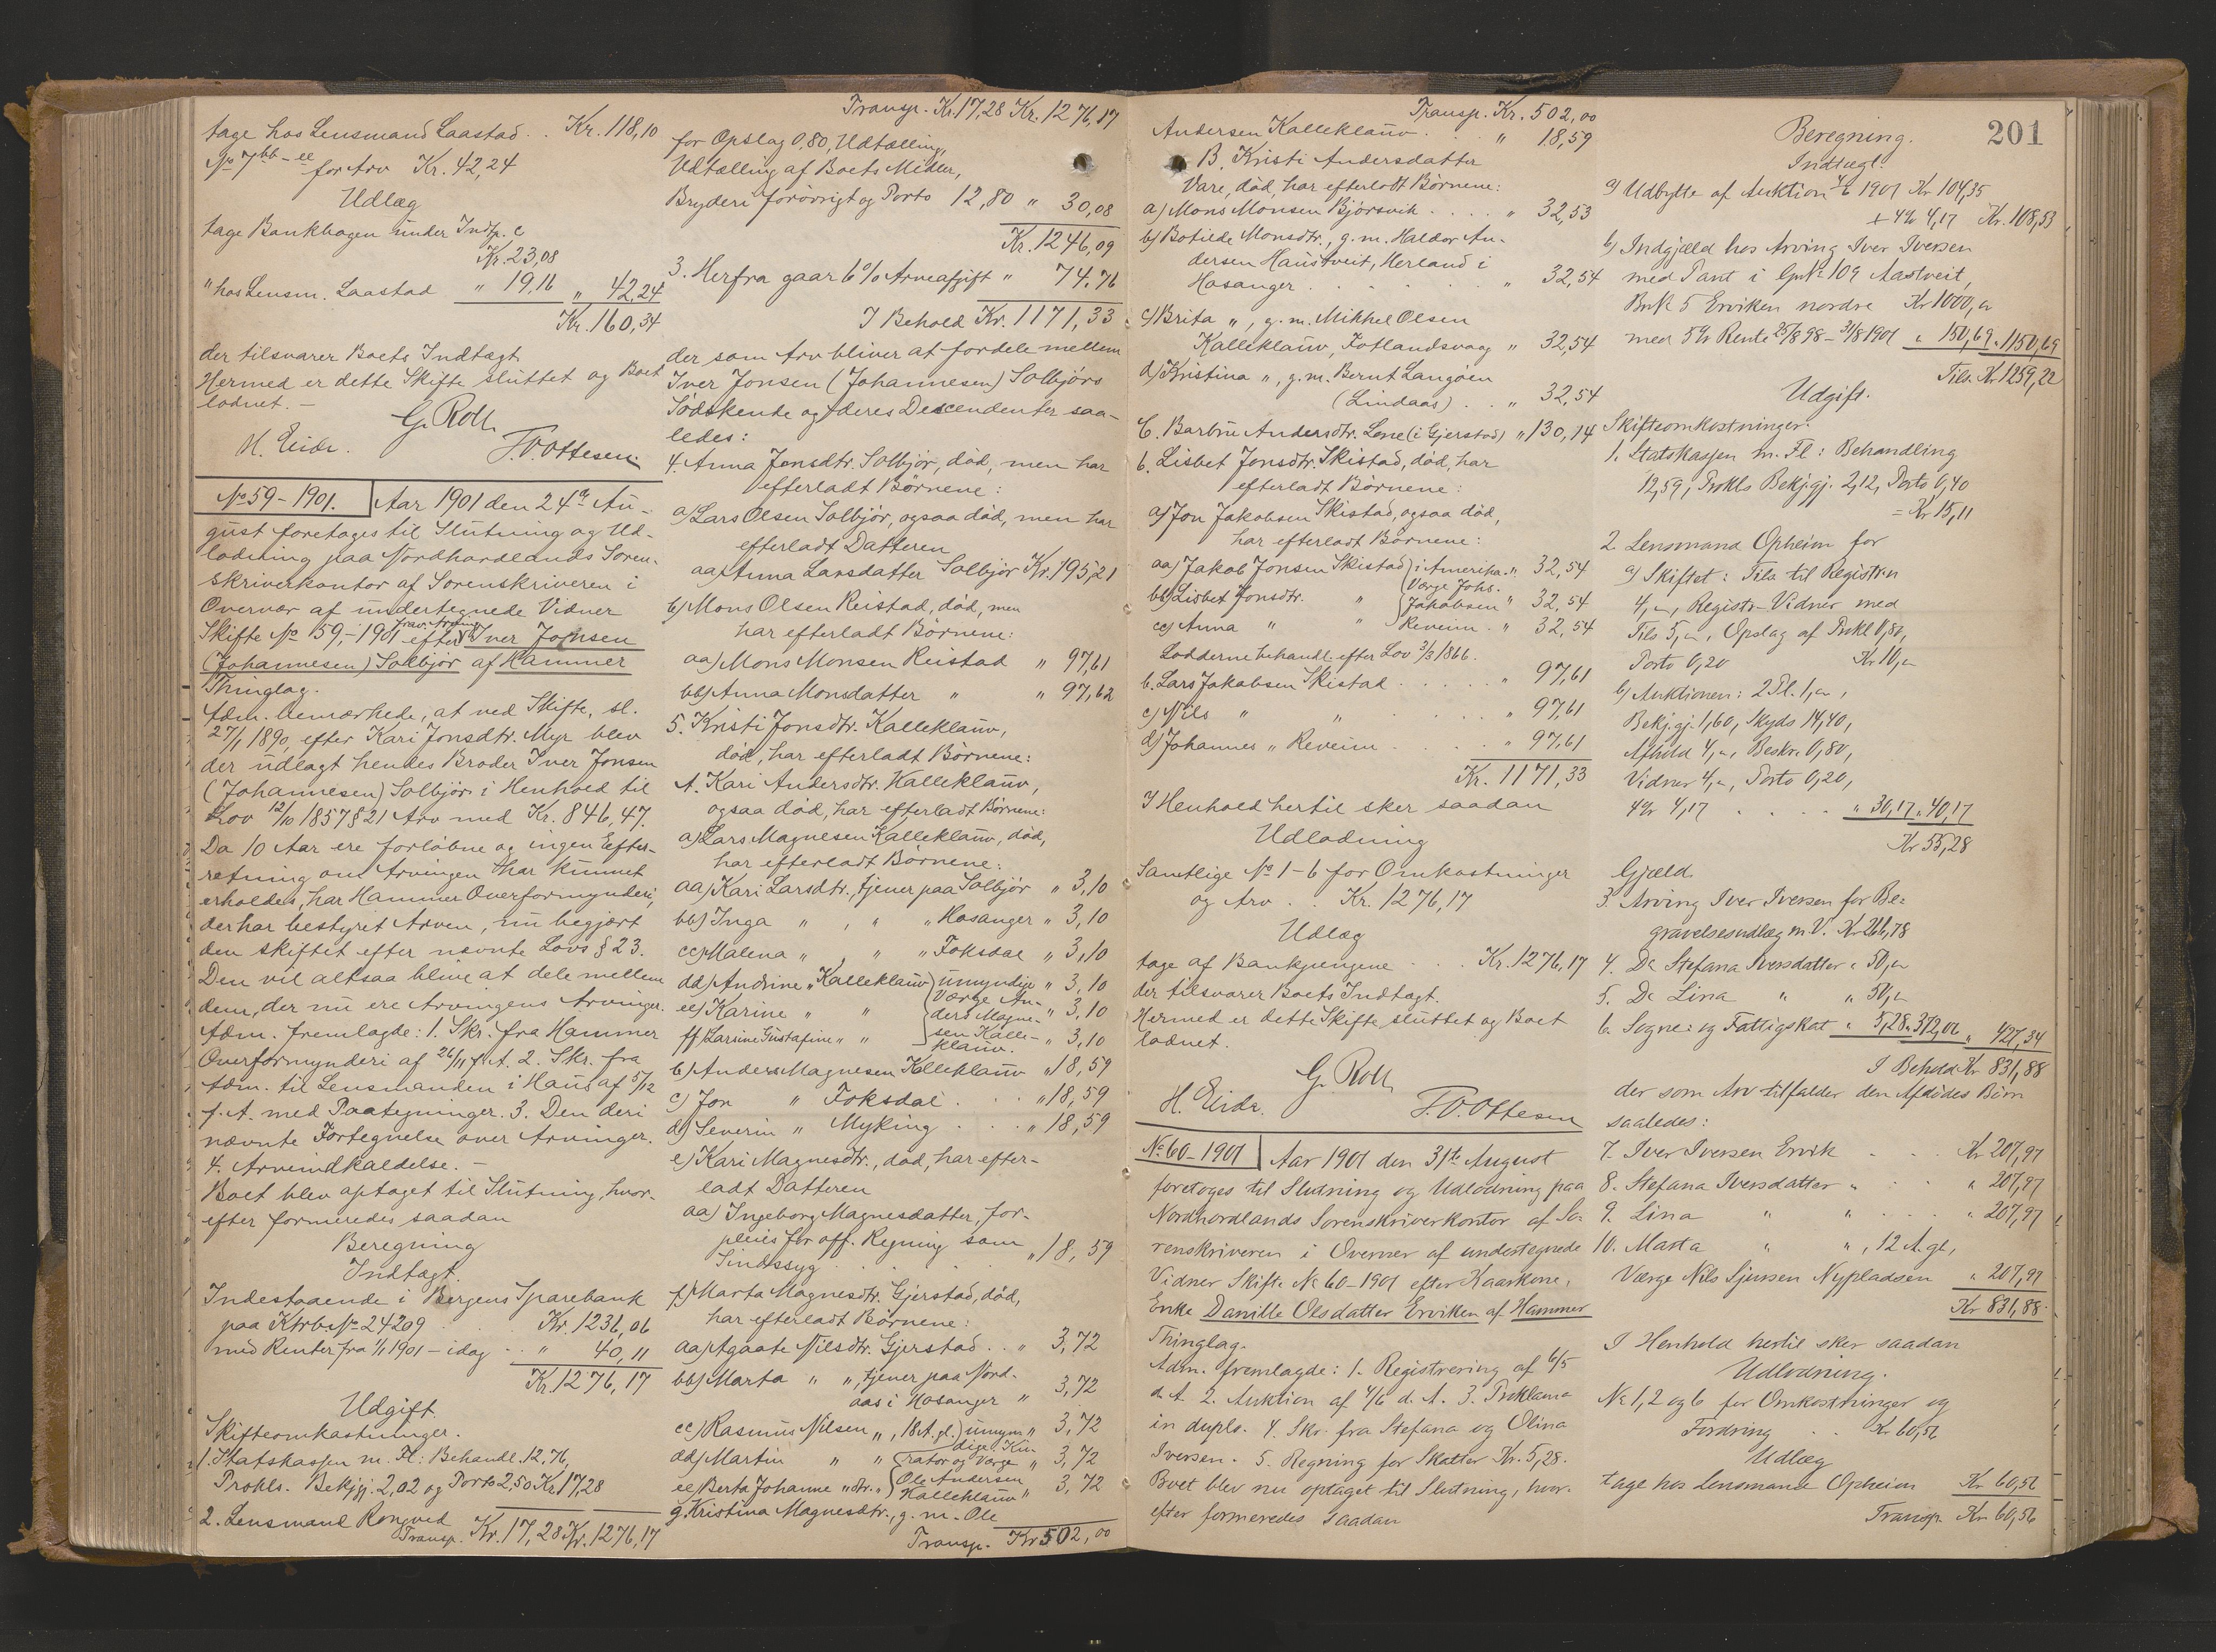 tage hos Lensmand Laastad . . Kr. 118,10
No 7 bb-ee for Arv Kr. 42,24
Udlæg
tage Bankbogen under Indt. c
Kr. 23,08
" hos Lensm. Laastad " 19,16 " 42,24
Kr. 160,34
der tilsvarer Boets Indtægt
Hermed er dette Skifte sluttet og Boet
lodnet. –
G. Roll
H. Eide. T.O. Ottesen.
No 59 – 1901. Aar 1901 den 24de Au-
gust foretoges til Slutning og Ud-
lodning paa Nordhordlands Soren-
skriverkontor af Sorenskriveren i
Overvær af undertegnede Vidner
Skifte No 59,- 1901 efter frav. Arving Iver Jonsen
(Johannesen) Solbjør af Hammer
Thinglag.
Adm. bemærkede, at ved Skifte, sl.
27/1 1890, efter Kari Jonsdtr. Myr blev
der udlagt hendes Broder Iver Jonsen
(Johannesen) Solbjør i Henhold til
Lov 12/10 1857 § 21 Arv med Kr. 846,47.
Da 10 Aar ere forløbne og ingen Efter-
retning om Arvingen har kunnet
erholdes, har Hammer Overformynderi,
der har bestyret Arven, nu begjært
den skiftet efter nævnte Lovs § 23.
Den vil altsaa blive at dele mellem
dem, der nu ere Arvingens Arvinger.
Adm. fremlagde: 1. Skr. fra Hammer
Overformynderi af 26/11 f. A. 2. Skr. fra
Adm. til Lensmanden i Haus af 5/12
f. A. med Paategninger. 3. Den deri
nævnte Fortegnelse over Arvinger.
4. Arveindkaldelse. –
Boet blev optaget til Slutning, hvor-
efter formeredes saadan
Beregning
Indtægt.
Indestaaende i Bergens Sparebank
paa Ktrb No 24209 Kr. 1236,06
med Renter fra 1/1 1901 – idag . . " 40,11
Kr. 1276,17
Udgift.
Skifteomkostninger.
1. Statskassen m. Fl: Behandl. 12,76,
Prokls. Bekjgj. 2,02 og Porto 2,50 Kr. 17,28
2. Lensmand Rongved
Transp. Kr. 17,28 Kr. 1276,17
Transp. Kr. 17,28 Kr. 1276,17
for Opslag 0,80, Udtælling,
Udtælling af Boets Midler,
Bryderi forøvrigt og Porto 12,80 " 30,08
Kr. 1246,09
3. Herfra gaar 6% Arveafgift " 74,76
I Behold Kr. 1171,33
der som Arv bliver at fordele mellem
Iver Jonsen (Johannesen) Solbjørs
Sødskende og deres Descendenter saa-
ledes:
4. Anna Jonsdtr. Solbjør, død, men har
efterladt Børnene:
a) Lars Olsen Solbjør, ogsaa død, men har
efterladt Datteren
aa) Anna Larsdatter Solbjør Kr. 195,21
b) Mons Olsen Reistad, død, men
har efterladt Børnene:
aa) Mons Monsen Reistad " 97,61
bb) Anna Monsdatter " " 97,62
5. Kristi Jonsdtr. Kalleklauv,
død, har efterladt Børnene:
A. Kari Andersdtr. Kalleklauv,
ogsaa død, har efterladt Børnene:
a) Lars Magnesen Kalleklauv, død,
har efterladt Børnene:
aa) Kari Larsdtr., tjener paa Solbjør " 3,10
bb) Inga " , " " Hosanger " 3,10
cc) Malena " , " " Foksdal " 3,10
dd) Andrine " Kalleklauv umyndige " 3,10
Værge An-
ee) Karine " " ders Magne- " 3,10
sen Kalle-
ff) Larine Gustafine " " klauv. " 3,10
b) Anders Magnesen Kalleklauv " 18,59
c) Jon " Foksdal . . . " 18,59
d) Severin " Myking . . . " 18,59
e) Kari Magnesdtr., død, har efter-
ladt Datteren
aa) Ingeborg Magnesdatter, for-
pleies for off. Regning som
Sindssyg . . . . " 18,59
f) Marta Magnesdtr. Gjerstad, død,
har efterladt Børnene:
aa) Agaate Nilsdtr. Gjerstad . . " 3,72
bb) Marta " ", tjener paa Nord-
aas i Hosanger " 3,72
cc) Rasmus Nilsen ", 18 A. gl. umyn- " 3,72
dige. Ku-
dd) Martin " " rator og Værge " 3,72
Ole Andersen
ee) Berta Johanne " dtr. " Kalleklauv " 3,72
g. Kristina Magnesdtr., g. m. Ole
Transp. Kr 502,00
Transp. Kr. 502,00
Andersen Kalleklauv . . " 18,59
B. Kristi Andersdatter
Vare, død, har efterladt Børnene:
a) Mons Monsen Bjørsvik . . . . " 32,53
b) Botilde Monsdtr., g. m. Haldor An-
dersen Haustveit, Herland i
Hosanger . . . . " 32,54
c) Brita ", g. m. Mikkel Olsen
Kalleklauv, Fotlandsvaag " 32,54
d) Kristina ", g. m. Bernt Langøen
(Lindaas) . . " 32,54
C. Barbru Andersdtr. Lone (i Gjerstad) " 130,14
6. Lisbet Jonsdtr. Skistad, død, har
efterladt Børnene:
a) Jon Jakobsen Skistad, ogsaa død,
har efterladt Børnene:
aa) Jakob Jonsen Skistad i Amerika. " 32,54
Værge Johs.
bb) Lisbet Jonsdtr. " Jakobsen " 32,54
cc) Anna " " Reveim . " 32,54
Lodderne behandl. efter Lov 3/3 1866.
b. Lars Jakobsen Skistad . . . . . " 97,61
c) Nils " " . . . . " 97,61
d) Johannes " Reveim . . . . " 97,61
Kr. 1171,33
I Henhold hertil sker saadan
Udlodning
Samtlige No 1-6 for Omkostninger
og Arv . . Kr. 1276,17
Udlæg
tage af Bankpengene . . . Kr. 1276,17
der tilsvarer Boets Indtægt.
Hermed er dette Skifte sluttet og Boet
lodnet.
G. Roll
H. Eide. T.O. Ottesen
No 60 – 1901 Aar 1901 den 31te August
foretoges til Slutning og Udlodning paa
Nordhordlands Sorenskriverkontor af So-
renskriveren i Overvær af undertegnede
Vidner Skifte No 60 – 1901 efter Kaarkone,
Enke Danille Olsdatter Erviken af Hammer
Thinglag.
Adm. fremlagde: 1. Registrering af 6/5
d. A. 2. Auktion af 4/6 d. A. 3. Proklama
in duplo. 4. Skr. fra Stefana og Olina
Iversen. 5. Regning for Skatter Kr. 5,28.
Boet blev nu optaget til Slutning, hvor-
efter formeredes saadan
201
Beregning.
Indtægt.
a) Udbytte af Auktion 4/6 1901 Kr 104,35
+ 4% 4,17 Kr. 108,53
b) Indgjæld hos Arving Iver Iversen
med Pant i Gno 109 Aastveit,
Bnk 5 Erviken nordre Kr 1000,"
med 5% Rente 25/8 98 – 31/8 1901 " 150,69 " 1150,69
Tils. Kr 1259,22
Udgift.
Skifteomkostninger:
1. Statskassen m. Fl: Behandling
12,59, Prokls Bekjgj. 2,12, Porto 0,40
= Kr 15,11
2. Lensmand Opheim for
a) Skiftet: Tils til Registr.n
4,", Registr.-Vidner med
Tils 5,", Opslag af Prokl 0,80,
Porto 0,20 Kr. 10,"
b) Auktionen: 2 Pl. 1,",
Bekjgj. 1,60, Skyds 14,40,
Afhold 4,", Beskr. 0,80,
Vidner 4,", Porto 0,20,
4% 4,17 . . . . " 30,17 " 40,17
Kr 55,28
Gjæld.
3. Arving Iver Iversen for Be-
gravelsesudlæg m. V. Kr 266,78
4. Do Stefana Iversdatter " 50,"
5. Do Lina " " 50,"
6. Sogne- og Fattigskat " 5,28 " 372,06 " 427,34
I Behold Kr 831,88
der som Arv tilfalder den Afdødes Børn
saaledes:
7. Iver Iversen Ervik . . . Kr 207,97
8. Stefana Iversdatter " . . . " 207,97
9. Lina " " . . . . " 207,97
10. Marta " ", 12 A. gl.,
Værge Nils Sjursen Nypladsen " 207,97
Kr 831,88.
I Henhold hertil sker saadan
Udlodning.
No 1, 2 og 6 for Omkostninger og
Fordring . . Kr. 60,56
Udlæg
tage hos Lensmand Opheim Kr 60,56
Transp. Kr. 60,56